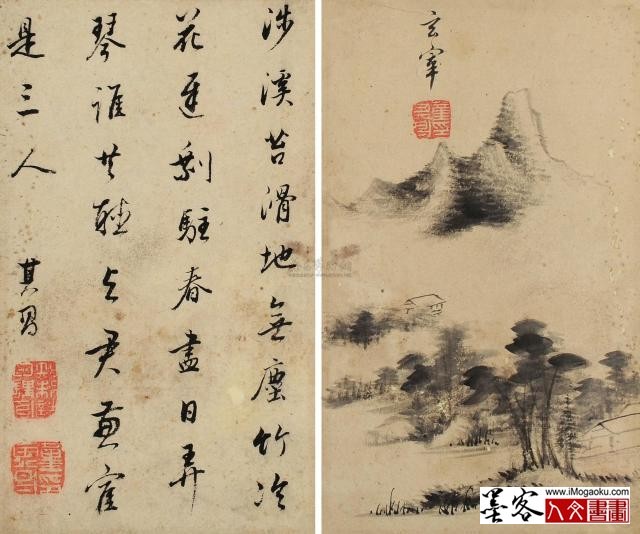 涉溪苔滑地無塵竹冷
花遲剩駐春盡日弄
琴誰共聽与君兼寉
是三人
其昌
玄宰
墨客
www.iMogaoku.com
人文書畫